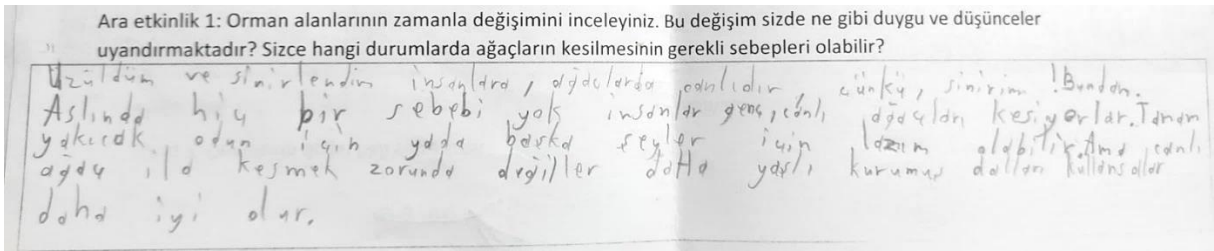 Ara etkinlik 1: Orman alanlarının zamanla değişimini inceleyiniz. Bu değişim sizde ne gibi duygu ve düşünceler
uyandırmaktadır? Sizce hangi durumlarda ağaçların kesilmesinin gerekli sebepleri olabilir?
Üzüldüm ve sinirlendim insanlara, ağaçlarda canlıdır, çünkü, sinirim !Bundan.
Aslında hiç bir sebebi yok insanlar genç, canlı ağaçları kesiyorlar. Tamam
yakıcak odun için yada başka şeyler için lazım olabilir. Ama canlı
ağaç illa kesmek zorunda değiller daHa yaşlı, kurumuş dalları kullansalar
daha iyi olur.